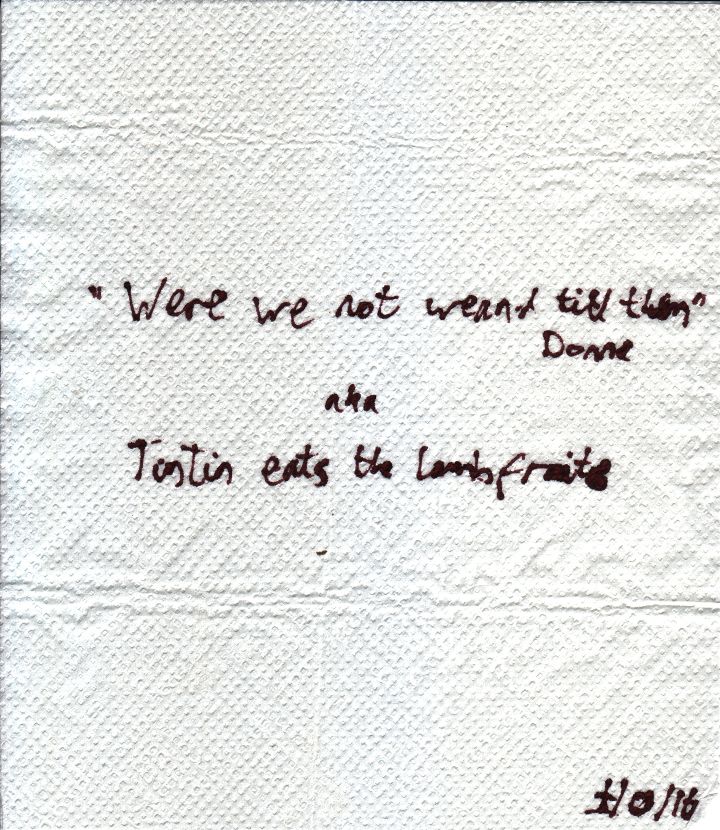 "Were we not weand till then"
Donne
aka
TinTin eats the lambsfraits